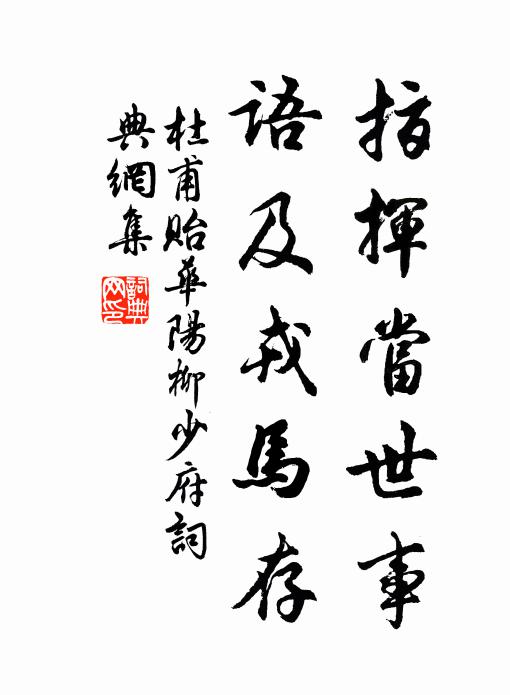 指揮當世事
語及戎馬存
杜甫貽華陽柳少府詞
典網集
詞典網印